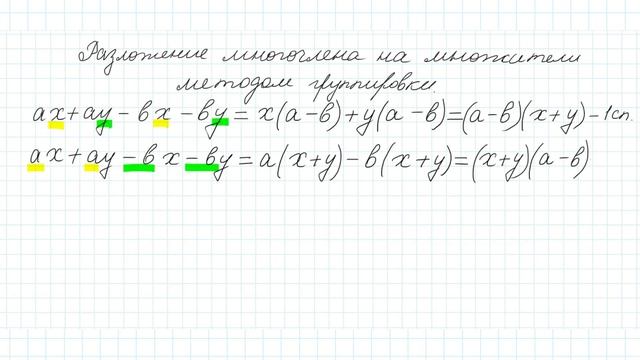 Разложение многочлена на множители
методом группировки.
ax+ay-вx-вy=x(a-в)+y(a-в)=(a-в)(x+y)-1сп.
ax+ay-вx-вy=a(x+y)-в(x+y)=(x+y)(a-в)